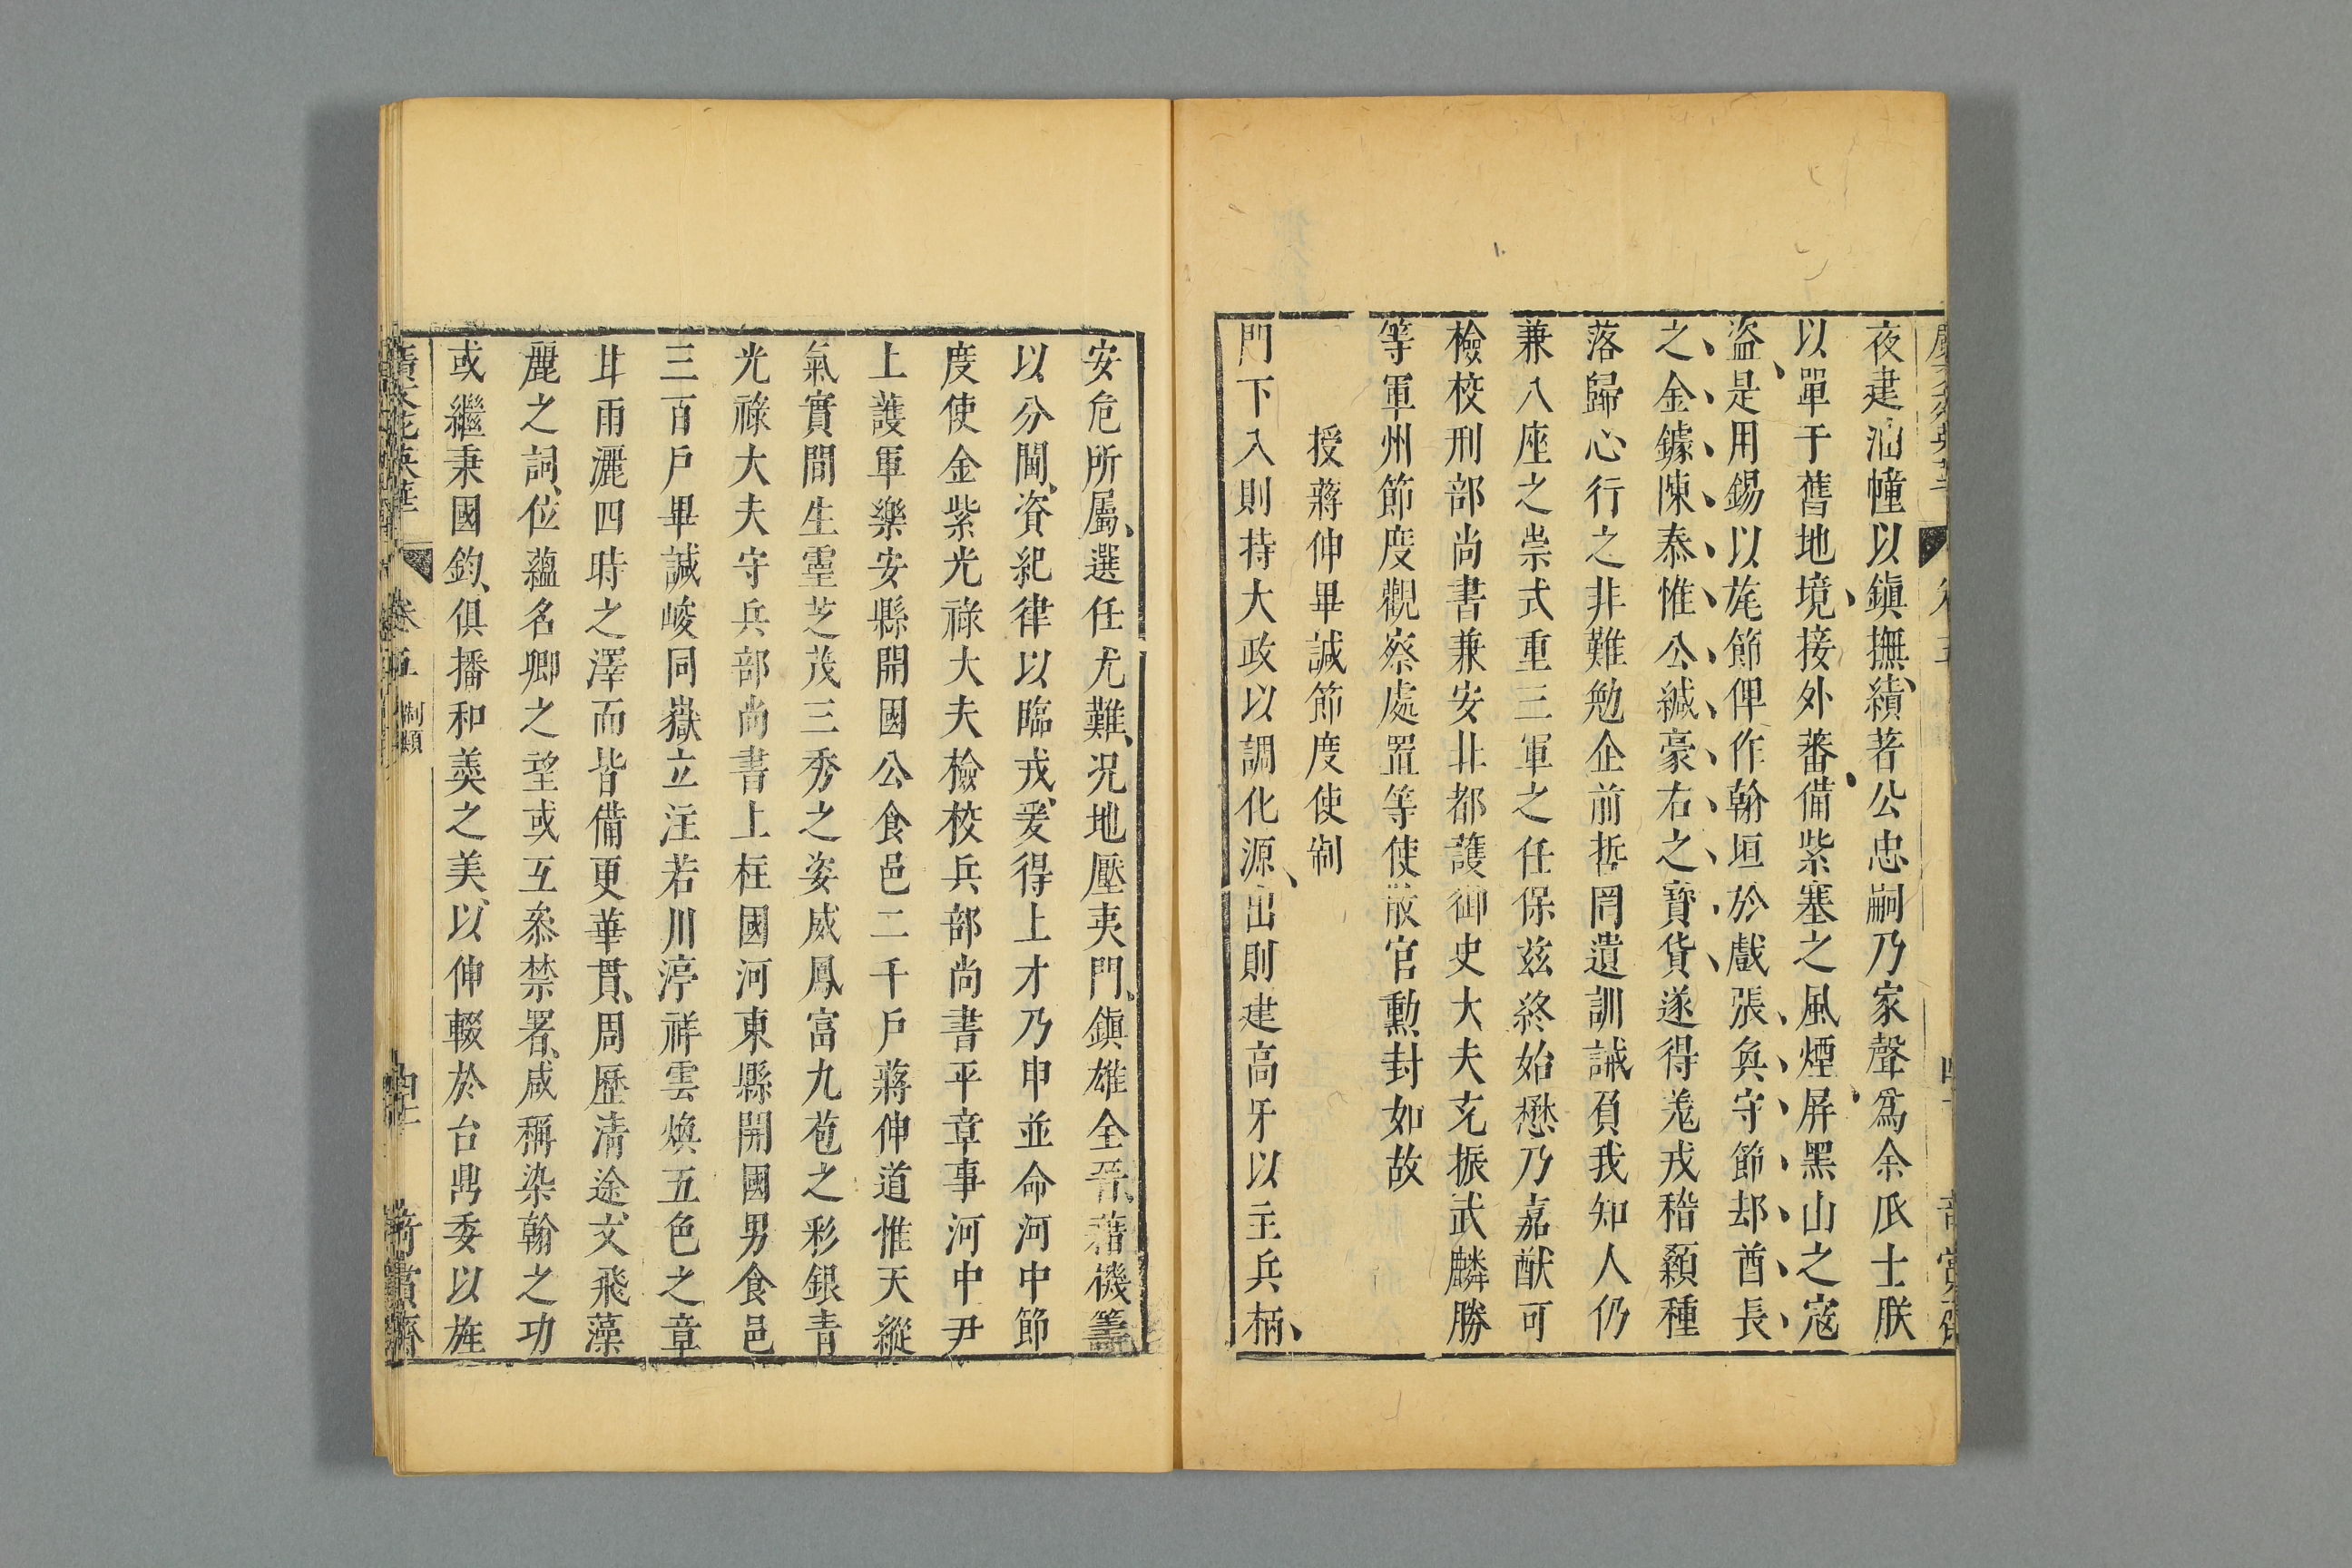 夜建油幢以鎭撫績著公忠嗣乃家聲爲余爪士朕
以單于舊地境接外蕃備紫塞之風煙屏黑山之寇
盜是用錫以旄節俾作翰垣於戲張奐守節却酋長
之金鐻陳泰惟公緘豪右之寶貨遂得羗戎稽顙種
落歸心行之非難勉企前哲罔遺訓誡負我知人仍
兼八座之崇式重三軍之任保兹終始懋乃嘉猷可
檢校刑部尚書兼安北都護御史大夫充振武麟勝
等軍州節度觀察處置等使散官勳封如故
授蔣伸畢諴節度使制
門下入則持大政以調化源出則建高牙以主兵柄
安危所屬選任尤難况地壓夷門鎭雄全晉藉機籌
以分閫資紀律以臨戎爰得上才乃申並命河中節
度使金紫光祿大夫檢校兵部尚書平章事河中尹
上護軍樂安縣開國公食邑二千戶蔣伸道惟天縱
氣實間生靈芝茂三秀之姿威鳳富九苞之彩銀青
光祿大夫守兵部尚書上柱國河東縣開國男食邑
三百戶畢諴峻同嶽立注若川渟祥雲煥五色之章
甘雨灑四時之澤而皆備更華貫周歷清途文飛藻
麗之詞位蘊名卿之望或互叅禁署咸稱染翰之功
或繼秉國鈞俱播和羹之美以伸輟於台鼎委以旌
廣文苑英華 卷五 制類